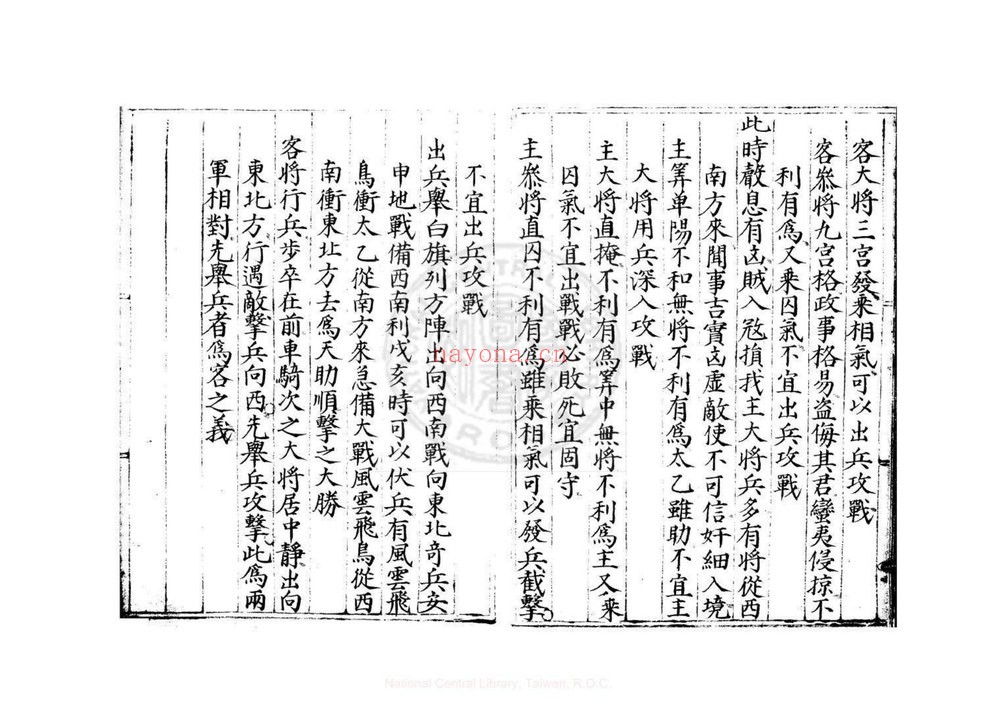 客大將三宫發乘相氣可以出兵攻戰
客叅將九宫格政事格易盗侮其君蠻夷侵掠不
利有爲又乘囚氣不宜出兵攻戰
此時聲息有凶賊入冦損我主大將兵多有將從西
南方來聞事吉實凶虚敵使不可信奸細入境
主筭单陽不和無將不利有爲太乙雖助不宜主
大將用兵深入攻戰
主大將直掩不利有爲筭中無將不利爲主又乘
囚氣不宜出戰戰必敗死宜固守
主叅將直囚不利有爲雖乘相氣可以發兵截擊
不宜出兵攻戰
出兵舉白旗列方陣出向西南戰向東北竒兵安
申地戰備西南利戌亥時可以伏兵有風雲飛
鳥衝太乙從南方來急備大戰風雲飛鳥從西
南衝東北方去爲天助順擊之大勝
客將行兵步卒在前車騎次之大將居中靜出向
東北方行遇敵擊兵向西先舉兵攻擊此爲兩
軍相對先舉兵者爲客之義
nayona.cn
National Central Library, Taiwan, R.O.C.